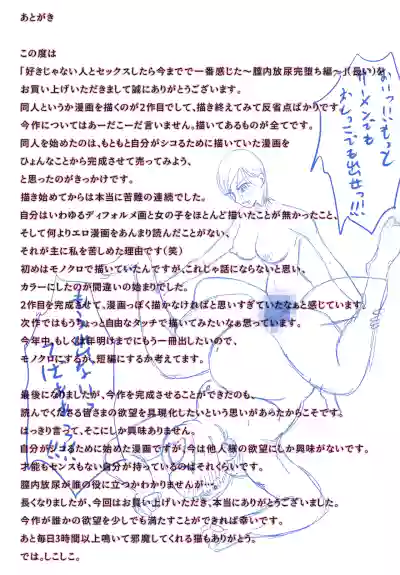 あとがき
この度は
「好きじゃない人とセックスしたら今までで一番感じた～膣内放尿完堕ち編～」(長い)を
お買い上げいただきまして誠にありがとうございます。
同人というか漫画を描くのが2作目でして、描き終えてみて反省点ばかりです。
今作についてはあーだこーだ言いません。描いてあるものが全てです。
同人を始めたのは、もともと自分がシコるために描いていた漫画を
ひょんなことから完成させて売ってみよう、
と思ったのがきっかけです。
描き始めてからは本当に苦難の連続でした。
自分はいわゆるディフォルメ画と女の子をほとんど描いたことが無かったこと、
そして何よりエロ漫画をあんまり読んだことがない、
それが主に私を苦しめた理由です(笑)
初めはモノクロで描いていたんですが、これじゃ話にならないと思い、
カラーにしたのが間違いの始まりでした。
2作目を完成させて、漫画っぽく描かなければと思いすぎていたなぁと感じています。
次作ではもうちょっと自由なタッチで描いてみたいなぁ思っています。
今年中、もしくは年明けまでにもう一冊出したいので、
モノクロにするか、短編にするか考えてます。
最後になりましたが、今作を完成させることができたのも、
読んでくださる皆さまの欲望を具現化したいという思いがあったからこそです。
はっきり言って、そこにしか興味ありません。
自分がシコるために始めた漫画ですが、今は他人様の欲望にしか興味がないです。
才能もセンスもない自分が持っているのはそれくらいです。
膣内放尿が誰の役に立つかわかりませんが…。
長くなりましたが、今回はお買い上げいただき、本当にありがとうございました。
今作が誰かの欲望を少しでも満たすことができれば幸いです。
あと毎日3時間以上鳴いて邪魔してくれる猫もありがとう。
では。しこしこ。
おいっ!!もっと
ザーメンでも
おしっこでも出せっ!!!